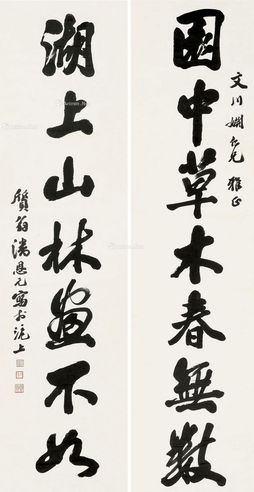 文川姻仁兄雅正
園中草木春無數
湖上山林畫不如
質翁潘恩元寫於滬上